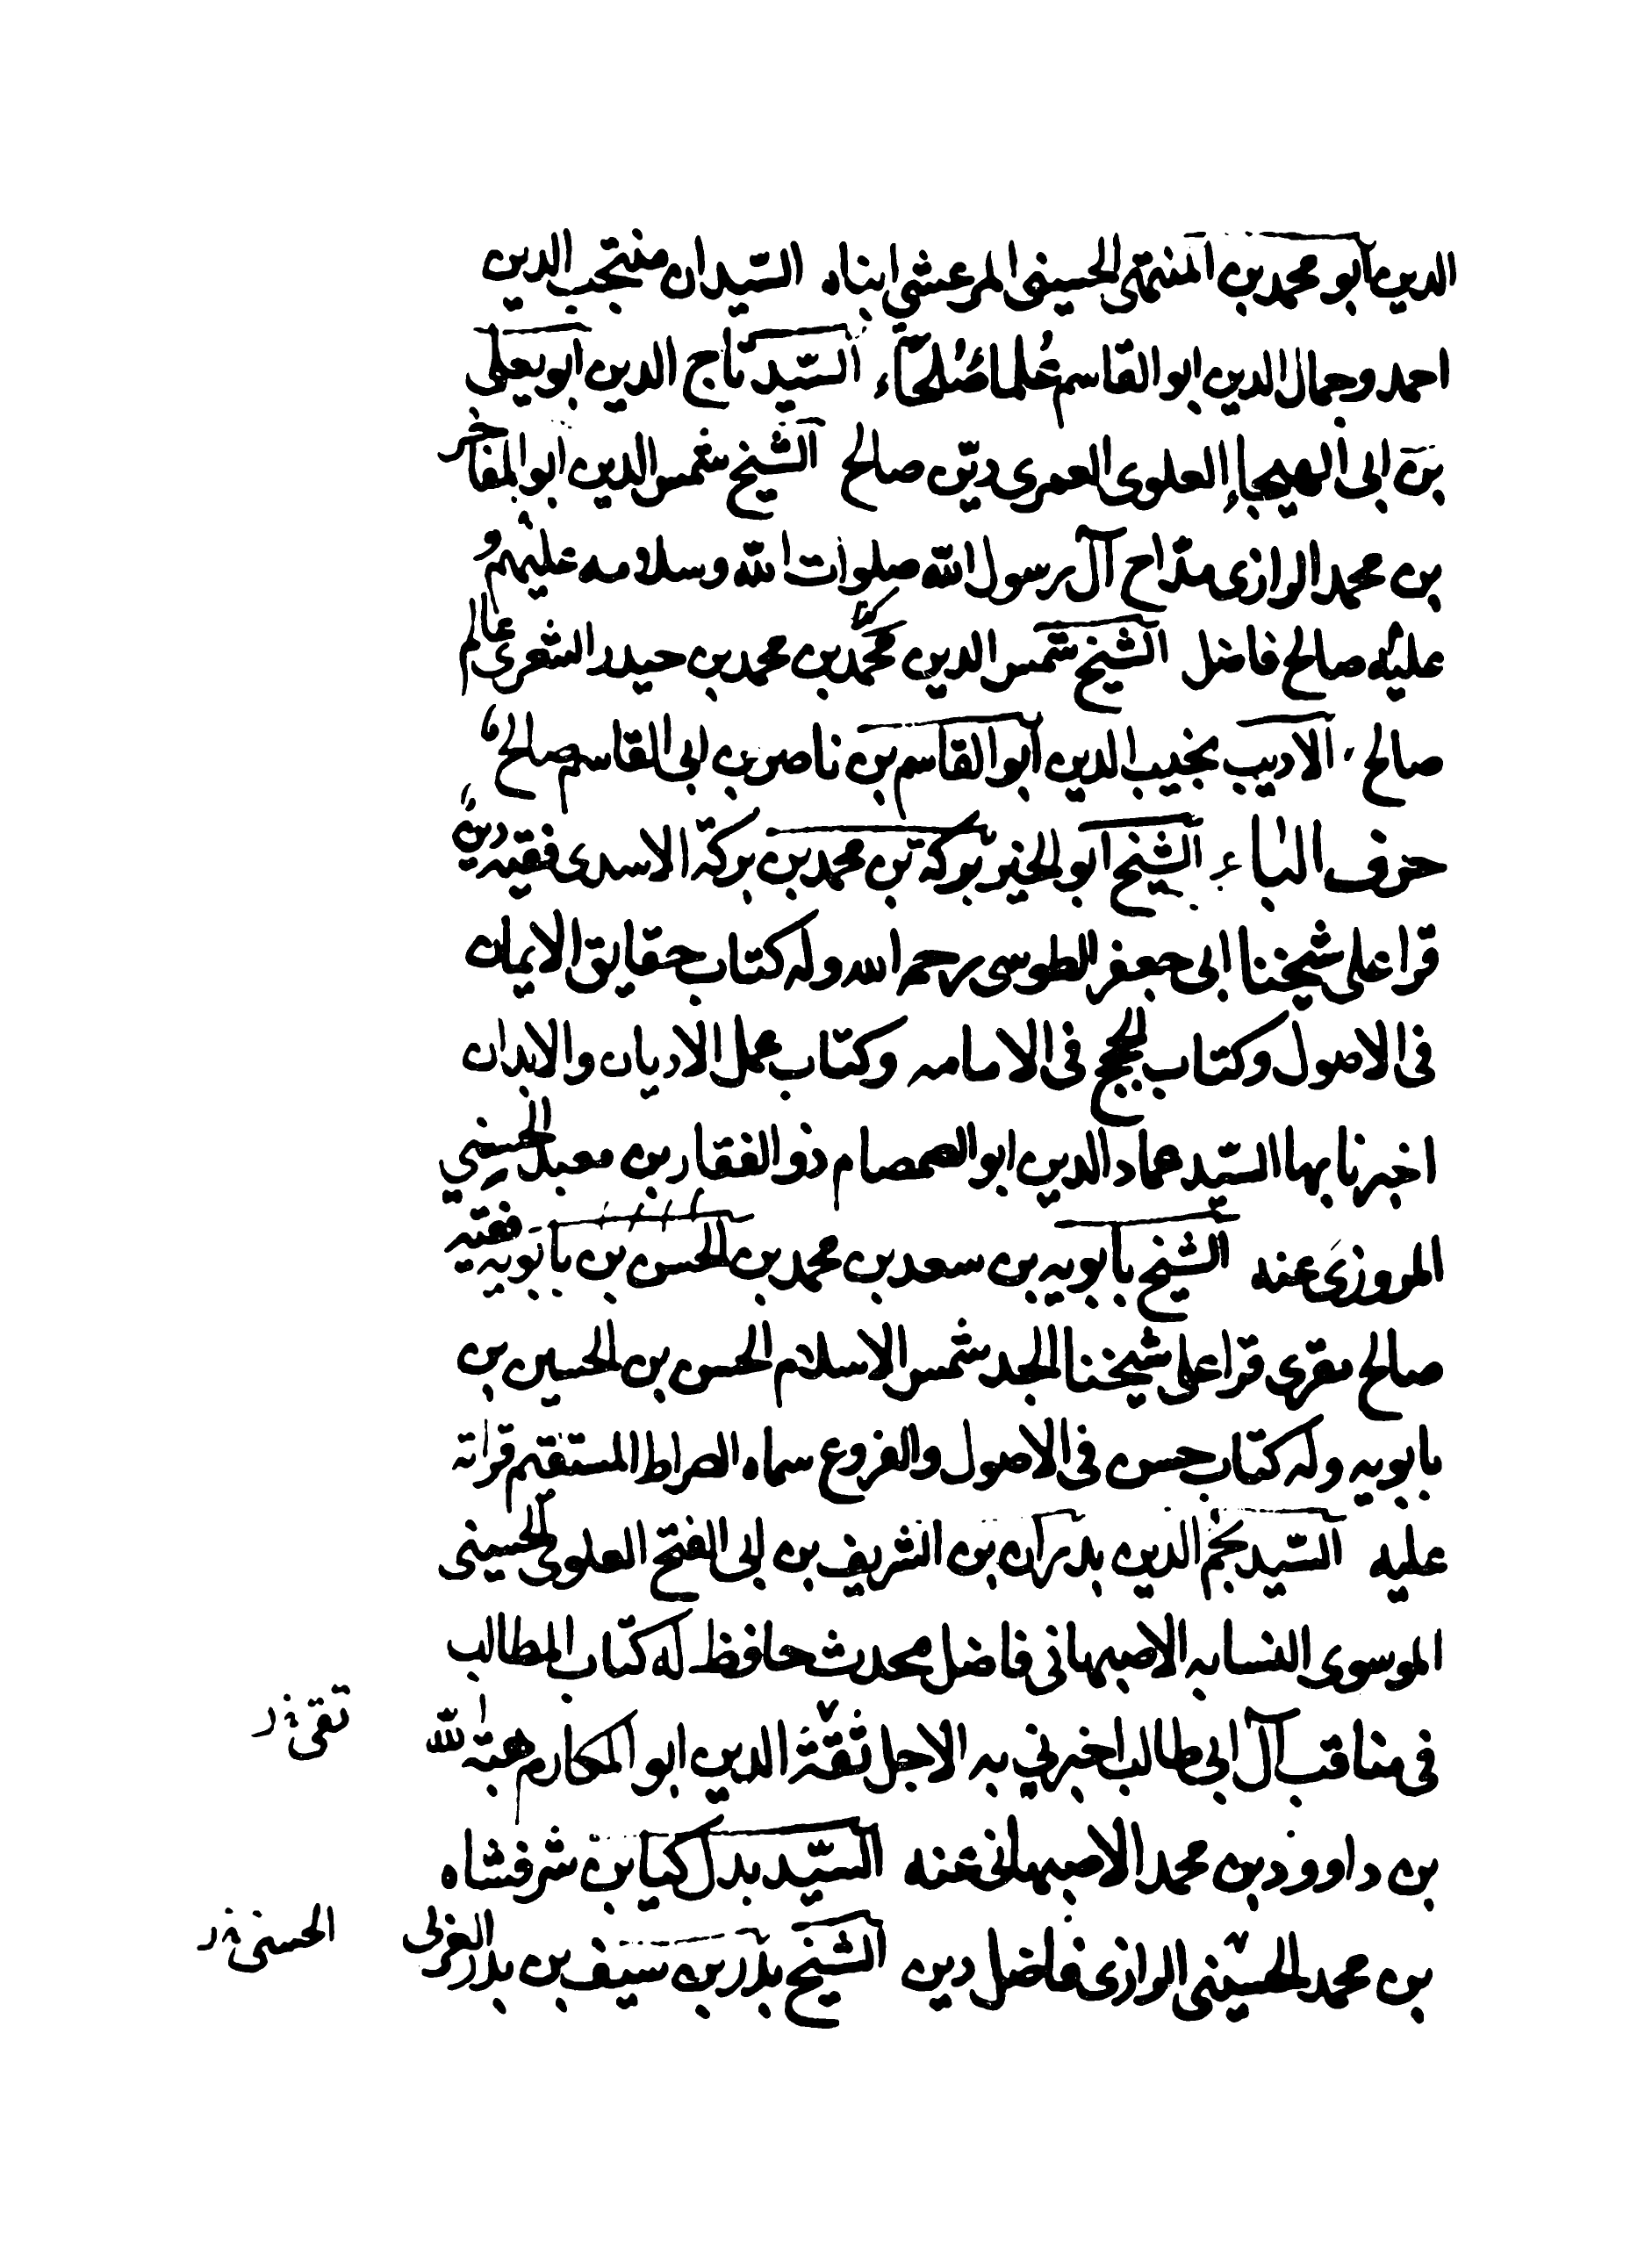 الدين ابو محمد بن المنتهى الحسينى المرعشى ابناه السّيدان منتجب الدين
احمد وجمال الدين ابو القاسم عُلما صُلحآء السّيد تاج الدين ابو يعلى
بن ابى الهيجاء العلوى العمرى ديّن صالح الشيخ شمس الدين ابو المفاخر
بن محمد الرازى مدّاح آل رسول الله صلوات الله وسلامه عليهم و
عليه صالح فاضل الشيخ شمس الدين محمّد بن محمد بن حيدر الشعرى عالم
صالح الاديب نجيب الدين ابو القاسم بن ناصر بن ابى القاسم صالح
حرف الباء الشيخ ابو الخير بركة بن محمد بن بركة الاسدى فقيه ديّن
قرا على شيخنا ابى جعفر الطوسى رحمه الله وله كتاب حقايق الايمان
فى الاصول وكتاب الحجج فى الامامه وكتاب عمل الاديان والابدان
اخبرنا بها السّيد عماد الدين ابو الصمصام ذو الفقار بن معبد الحسينى
المروزى عنه الشيخ بابويه بن سعد بن محمد بن الحسن بن بابويه فقيه
صالح مقرى قرا على شيخنا الجد شمس الاسلام الحسن بن الحسين بن
بابويه وله كتاب حسن فى الاصول والفروع سماه الصراط المستقيم قراته
عليه السّيد نجم الدين بدران بن الشريف بن ابى الفتح العلوى الحسينى
الموسوى النسابه الاصبهانى فاضل محدث حافظ له كتاب المطالب
فى مناقب آل ابى طالب اخبرني به الاجل ثقة الدين ابو المكارم هبة الله
تقى
بن داوود بن محمد الاصبهانى عنه السّيد بدل كيا بن شرفشاه
بن محمد الحسينى الرازى فاضل دين الشيخ بدر بن سيف بن بدر العربى
الحسنى